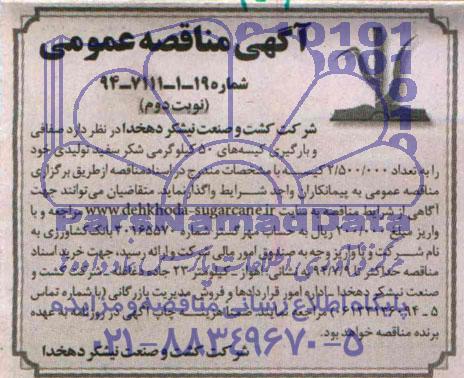 آگهی مناقصه عمومی
شماره ۱۹-۱-۷۱۱۱-۹۴
(نوبت دوم)
شرکت کشت و صنعت نیشکر دهخدا در نظر دارد صفافی
و بارگیری کیسه‌های ۵۰ کیلوگرمی شکر سفید تولیدی خود
را به تعداد ۲/۵۰۰/۰۰۰ کیسه با مشخصات مندرج در اسناد مناقصه از طریق برگزاری
مناقصه عمومی به پیمانکاران واجد شرایط واگذار نماید. متقاضیان می‌توانند جهت
آگاهی از شرایط مناقصه به سایت www.dehkhoda-sugarcane.ir مراجعه و با
واریز مبلغ ریال به حساب مهر گستر شماره ۳۰۱۶۵۵۷ بانک کشاورزی به
نام شرکت و یا واریز وجه به صندوق امور مالی شرکت و ارائه رسید، جهت خرید اسناد
مناقصه حداکثر تا به نشانی اهواز- کیلومتر ۲۳ جاده شرکت کشت و
صنعت نیشکر دهخدا - اداره امور قراردادها و فروش مدیریت بازرگانی (با شماره تماس
مراجعه نمایند. ضمناً هزینه چاپ آگهی در روزنامه به عهده
برنده مناقصه خواهد بود.
شرکت کشت و صنعت نیشکر دهخدا
ParsNamadData
پایگاه اطلاع رسانی مناقصه و مزایده
۰۲۱-۸۸۳۴۹۶۷۰-۵